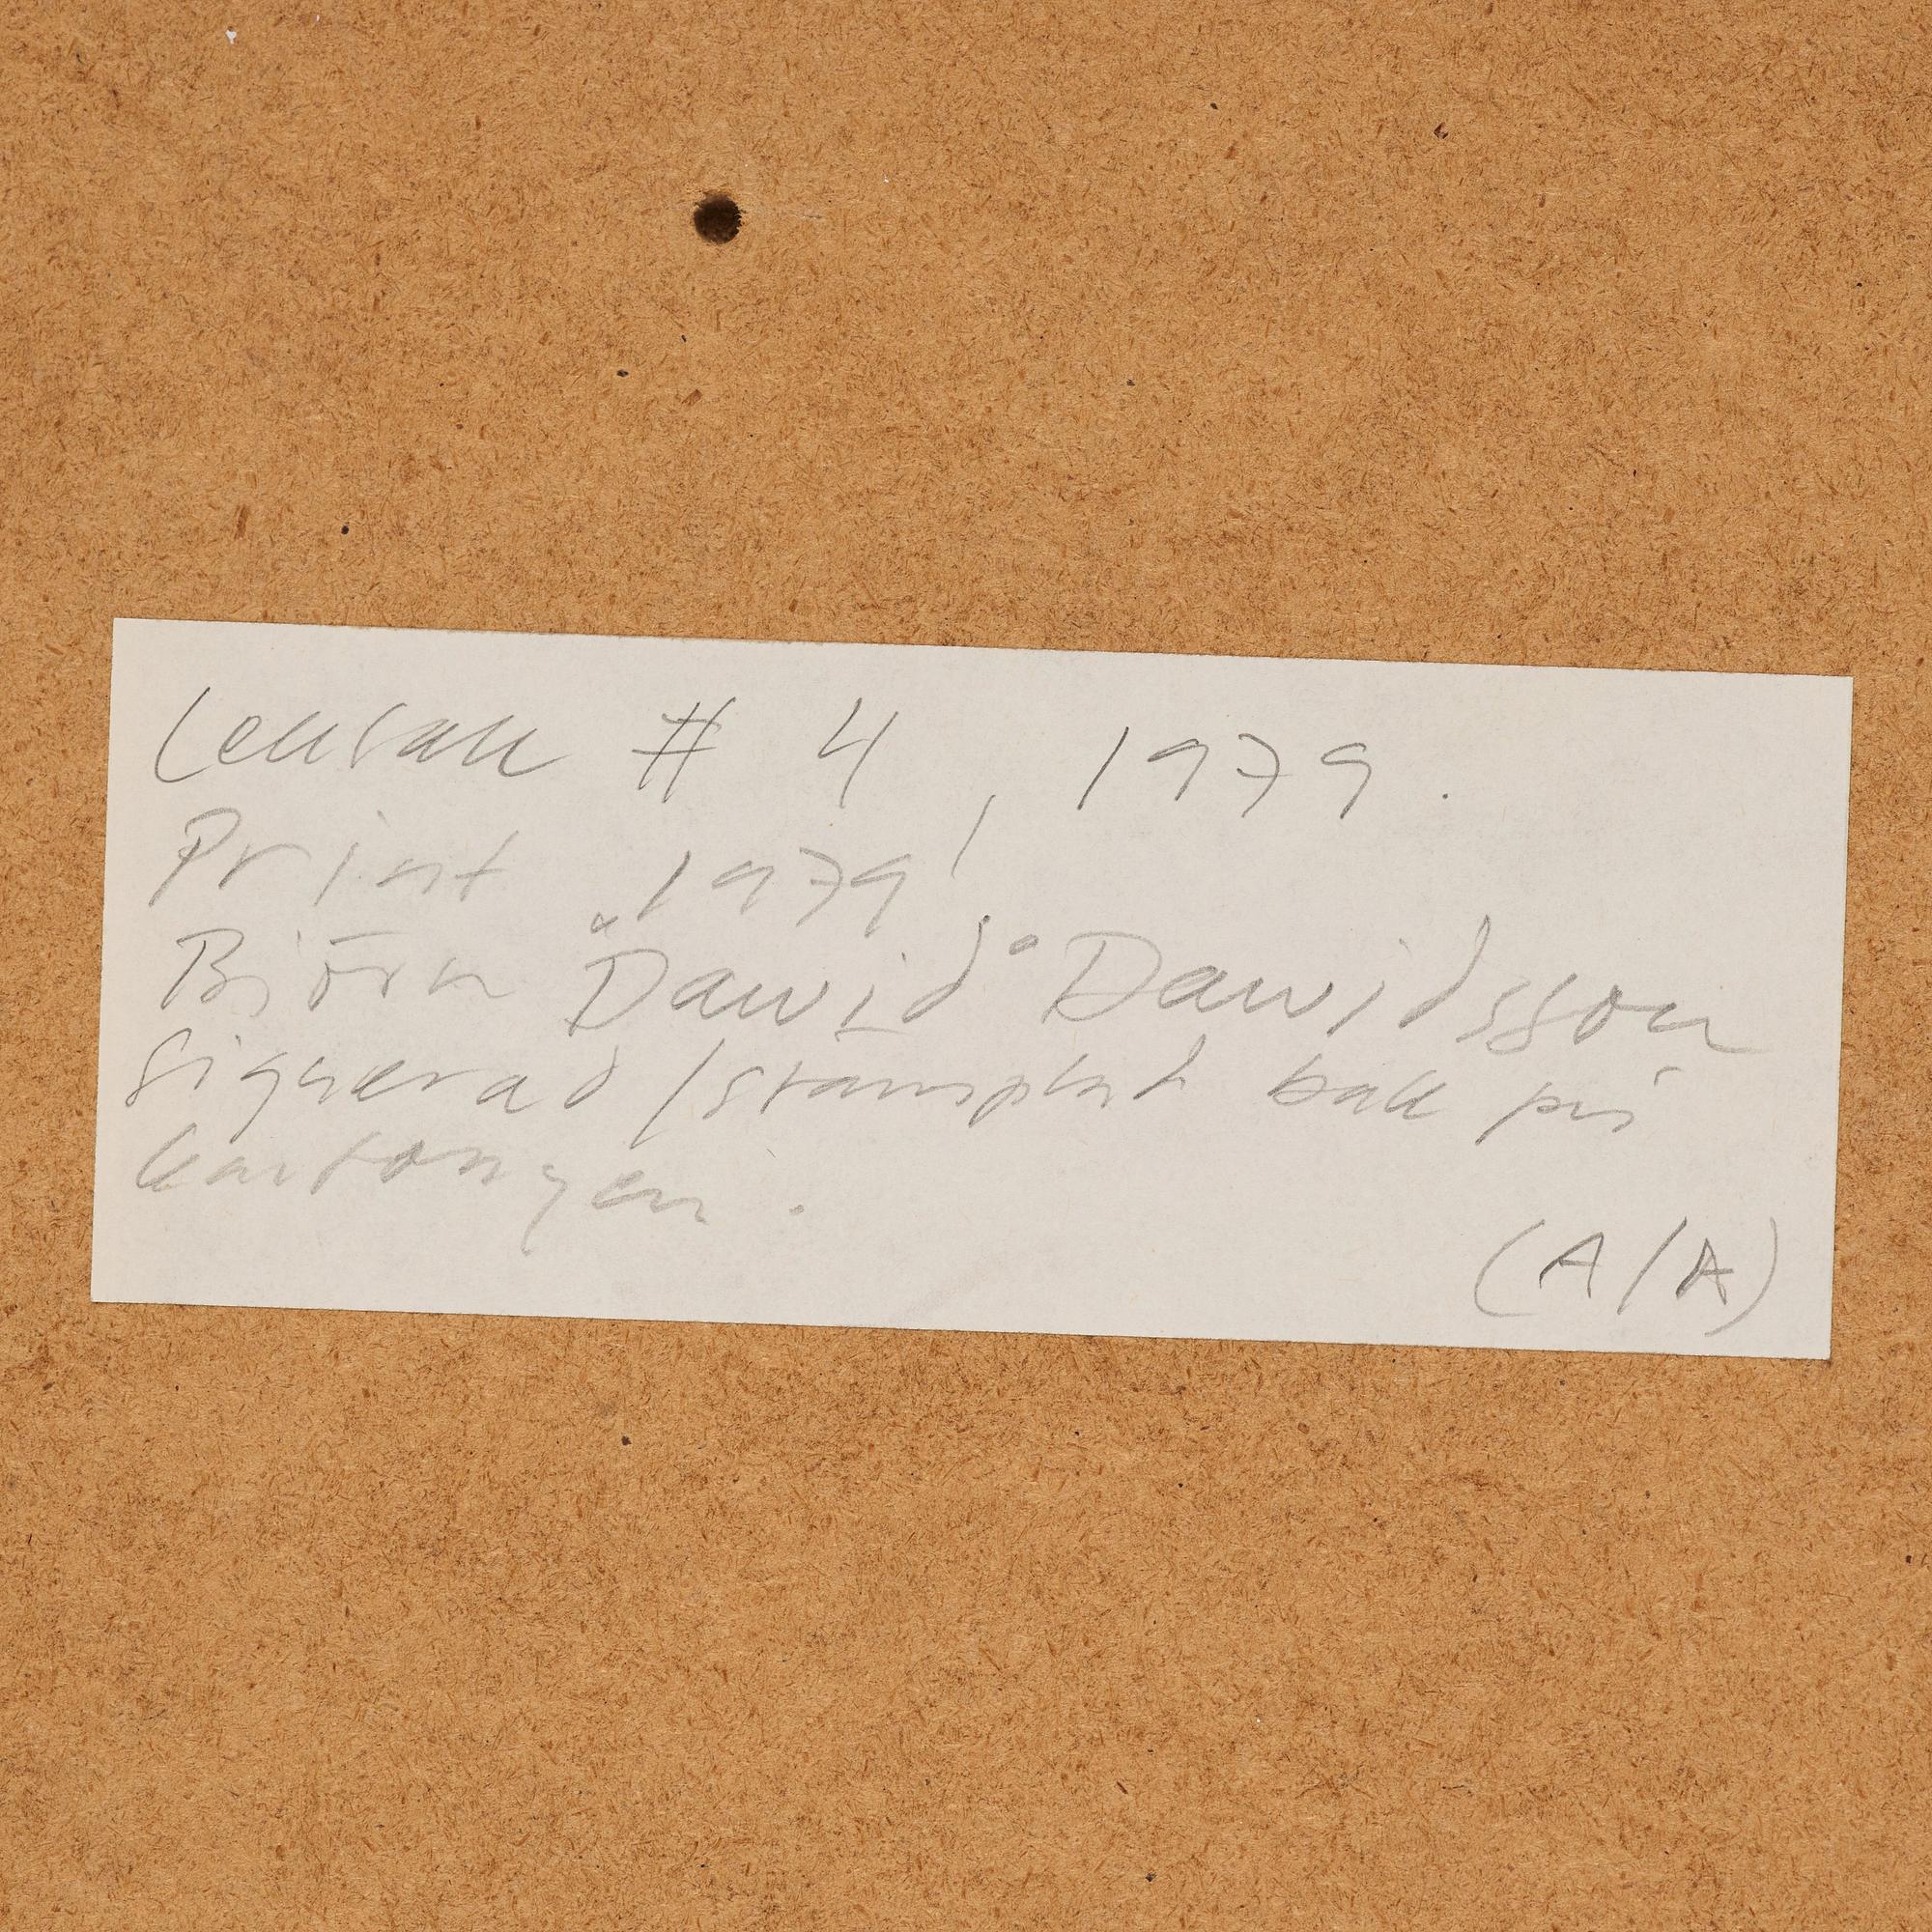 # 4, 1979.
Print 1979,
Björn "Dawid" Dawidsson
Signerad/stämplad bak på
kartongen.
(A/A)